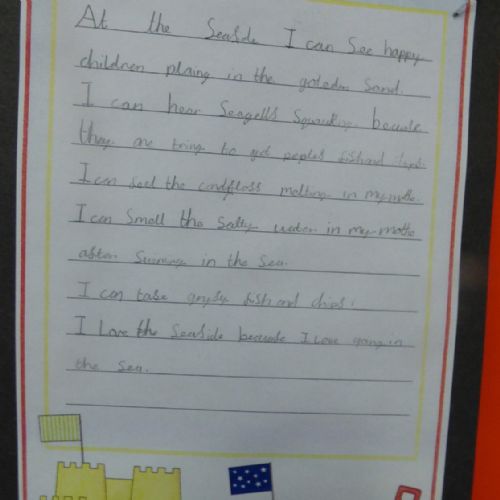 At the Seaside I can See happy
children plaing in the goldon Sand.
I can hear Seagells Squaking becuase
they are tring to get peples fish and chips.
I can feel the candfloss melting in my mothe.
I can Smell the Salty water in my mothe
after Swiming in the Sea.
I can tase greysy fish and chips.
I Love the Seaside because I Love going in
the Sea.